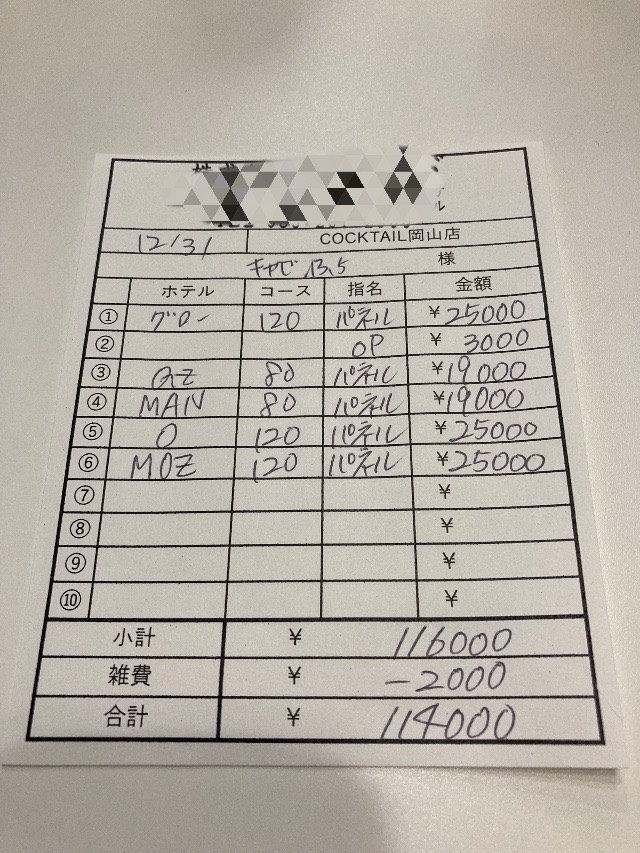 12/31 COCKTAIL岡山店
様
ホテル コース 指名 金額
① グロー 120 パネル ¥25000
② OP ¥3000
③ 80 パネル ¥19000
④ MAN 80 パネル ¥19000
⑤ O 120 パネル ¥25000
⑥ MOZ 120 パネル ¥25000
⑦ ¥
⑧ ¥
⑨ ¥
⑩ ¥
小計 ¥ 116000
雑費 ¥ -2000
合計 ¥ 114000